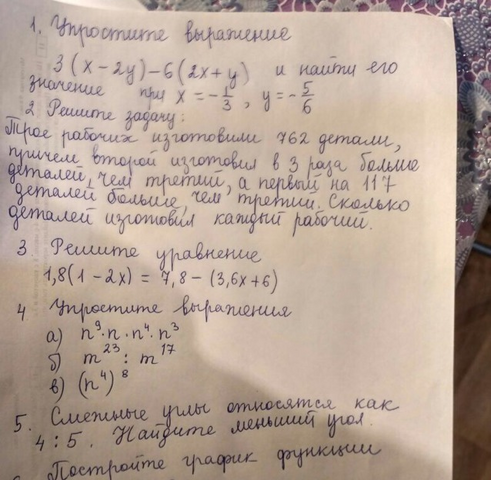 1. Упростите выражение
3(x-2y)-6(2x+y) и найти его
значение при x=-1/3, y=-5/6
2 Решите задачу:
Трое рабочих изготовили 762 детали,
причем второй изготовил в 3 раза больше
деталей, чем третий, а первый на 117
деталей больше, чем третий. Сколько
деталей изготовил каждый рабочий.
3 Решите уравнение
1,8(1-2x) = 7,8-(3,6x+6)
4 Упростите выражения
а) n⁹·n·n⁴·n³
б) m²³ : m¹⁷
в) (n⁴)⁸
5. Смежные углы относятся как
4:5. Найдите меньший угол.
Постройте график функции